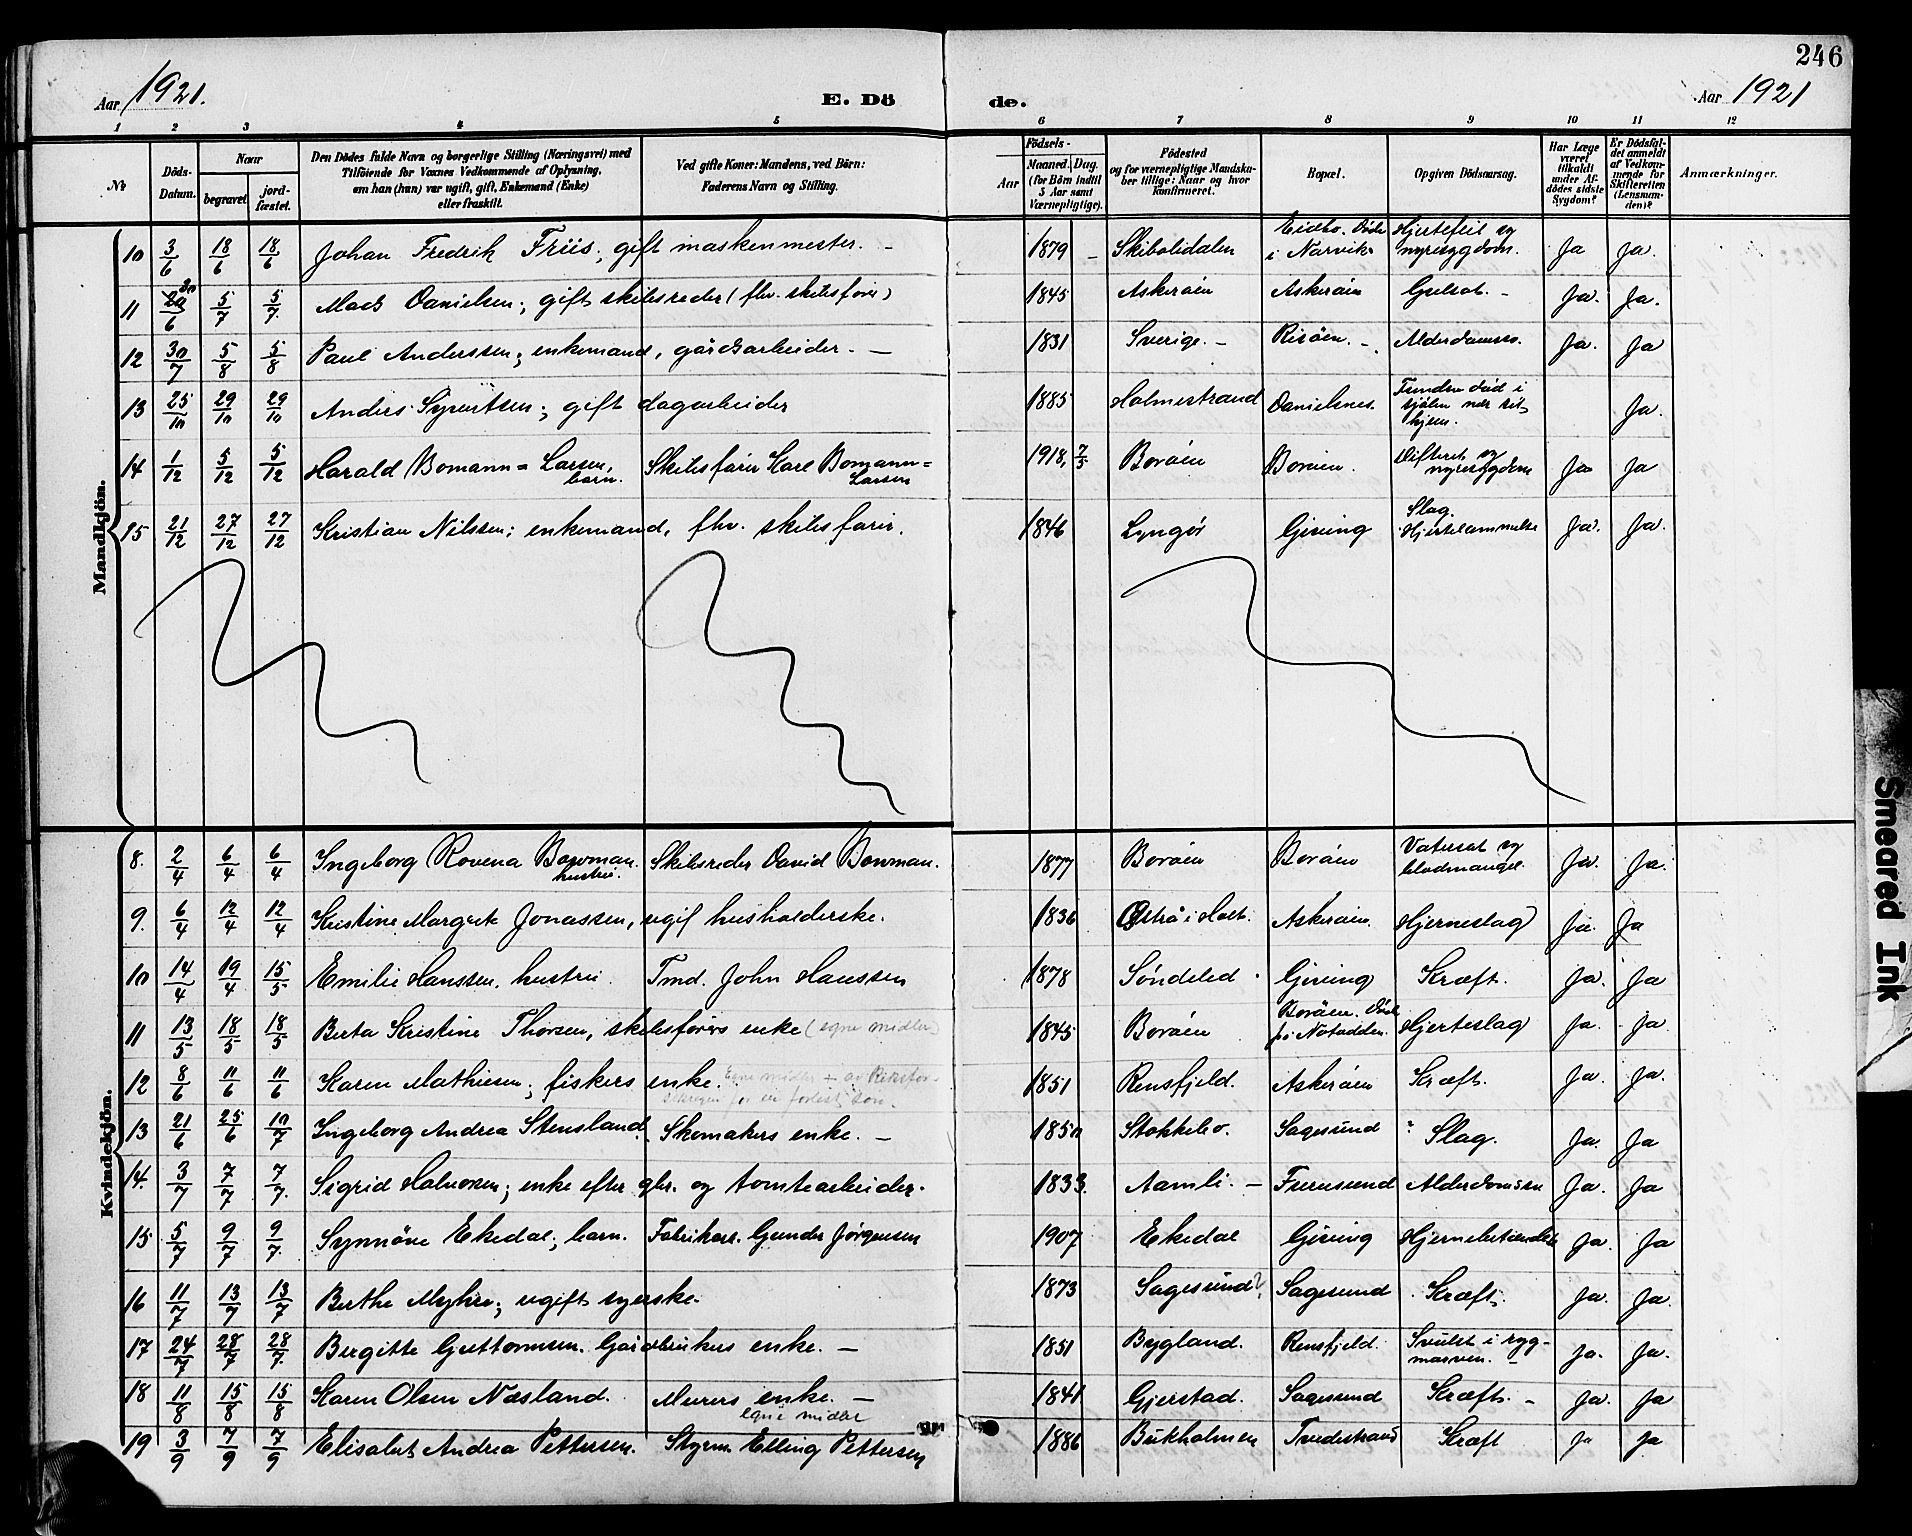 246
Aar 1921.
E. Dö
de.
Aar 1921
1 2 3 4 5 6 7 8 9 10 11 12
No
Döds-Datum.
Naar
begravet
jordfæstet.
Den Dödes fulde Navn og borgerlige Stilling (Næringsvei) med
Tilföiende for Voxnes Vedkommende af Oplysning,
om han (hun) var ugift, gift, Enkemand (Enke)
eller fraskilt.
Ved gifte Koner: Mandens, ved Börn:
Faderens Navn og Stilling.
Födsels-
Aar
Maaned. Dag.
(for Börn indtil
5 Aar samt
Værnepligtige).
Födested
og for værnepligtige Mandska-
ber tillige: Naar og hvor
konfirmeret.
Bopæl.
Opgiven Dödsaarsag.
Har Læge
været
tilkaldt
under Af-
dödes sidste
Sygdom?
Er Dödsfal-
det anmeldt
af Vedkom-
mende for
Skifteretten
(Lensman-
den)?
Anmærkninger.
Mandkjön.
10 3/6 18/6 18/6 Johan Fredrik Friis, gift maskinmester. – 1879 – Skibotdalen Eidbo. Död i Narvik Hjertefeil og nyresygdom. Ja Ja.
11 30/6 5/7 5/7. Mads Danielsen; gift skibsreder (fhv. skibsförer) 1845 Askeröen Askeröen Gulsot. – Ja. Ja.
12 30/7 5/8 5/8 Paul Anderssen; enkemand, gårdsarbeider. – 1831 Sverige. – Risöen. – Alderdomss. Ja. Ja
13 25/10 29/10 29/10 Anders Syvertsen; gift dagarbeider 1885 Holmestrand Danielsnes. Funden död i sjöen nær sit hjem. Ja.
14 1/12 5/12 5/12 Harald Bomann=Larsen, barn. Skibsförer Karl Bomann=Larsen 1918, 7/5 Boröen Boröen. Difterit og nyresygdom Ja Ja
15 21/12 27/12 27/12 Kristian Nilssen; enkemand, fhv. skibsförer. 1846 Lyngör Gjeving Slag. Hjertelammelse Ja. Ja.
Kvindekjön.
8. 2/4 6/4 6/4 Ingeborg Rovena Bowman. hustru. Skibsreder David Bowman. 1877 Boröen Boröen Vatersot og blodmangel. Ja. Ja.
9. 6/4 12/4 12/4 Kristine Margrete Jonassen, ugif husholderske. 1836 Østrå i Holt. Askeröen. Hjerneslag Ja. Ja
10 14/4 19/4 15/5 Emilie Hanssen, hustru. Tmd. John Hanssen 1878 Söndeled Gjeving Kræft. Ja. Ja
11 13/5 18/5 18/5 Berta Kristine Thorsen, skibsförers enke (egne midler) 1845 Boröen Boröen. Död på Notodden. Hjerteslag Ja. Ja
12 8/6 11/6 11/6 Karen Mathiesen; fiskers enke. Egne midler + av Riksfor- 1851 Rensfjeld. Askeröen Kræft. Ja. Ja.
13 21/6 25/6 10/7 Ingeborg Andrea Stensland. Skomakers enke. – 1850 Stokkebo. Sagesund ? Slag. Ja. Ja
14. 3/7 7/7 7/7. Sigrid Halvorsen; enke efter gbr. og tomtearbeider. 1833. Aamli. – Furusund Alderdomssv Ja. Ja
15 5/7 9/7 9/7. Synnöve Ekedal; barn. Fabrikarb. Gunder Jörgensen 1907 Ekedal Gjeving Hjernebetændelse Ja. Ja
16 11/7 13/7 13/7 Berthe Myhre; ugift syerske. 1873 Sagesund?, Sagesund Kræft. Ja. Ja.
17 24/7 28/7 28/7. Bergitte Guttormsen. Gårdbrukers enke. – 1851 Bygland. Rensfjeld. Svulst i ryg-marven. – Ja. Ja.
18 11/8 15/8 15/8 Karen Olsen Næsland. Murers enke. – egne midler 1841 Gjerstad. Sagesund Kræft. – Ja. Ja
19 3/9 7/9 7/9 Elisabet Andrea Pettersen. Styrm. Elling Pettersen 1886 Bukholmen Tvedestrand Kræft Ja Ja
Smeared Ink